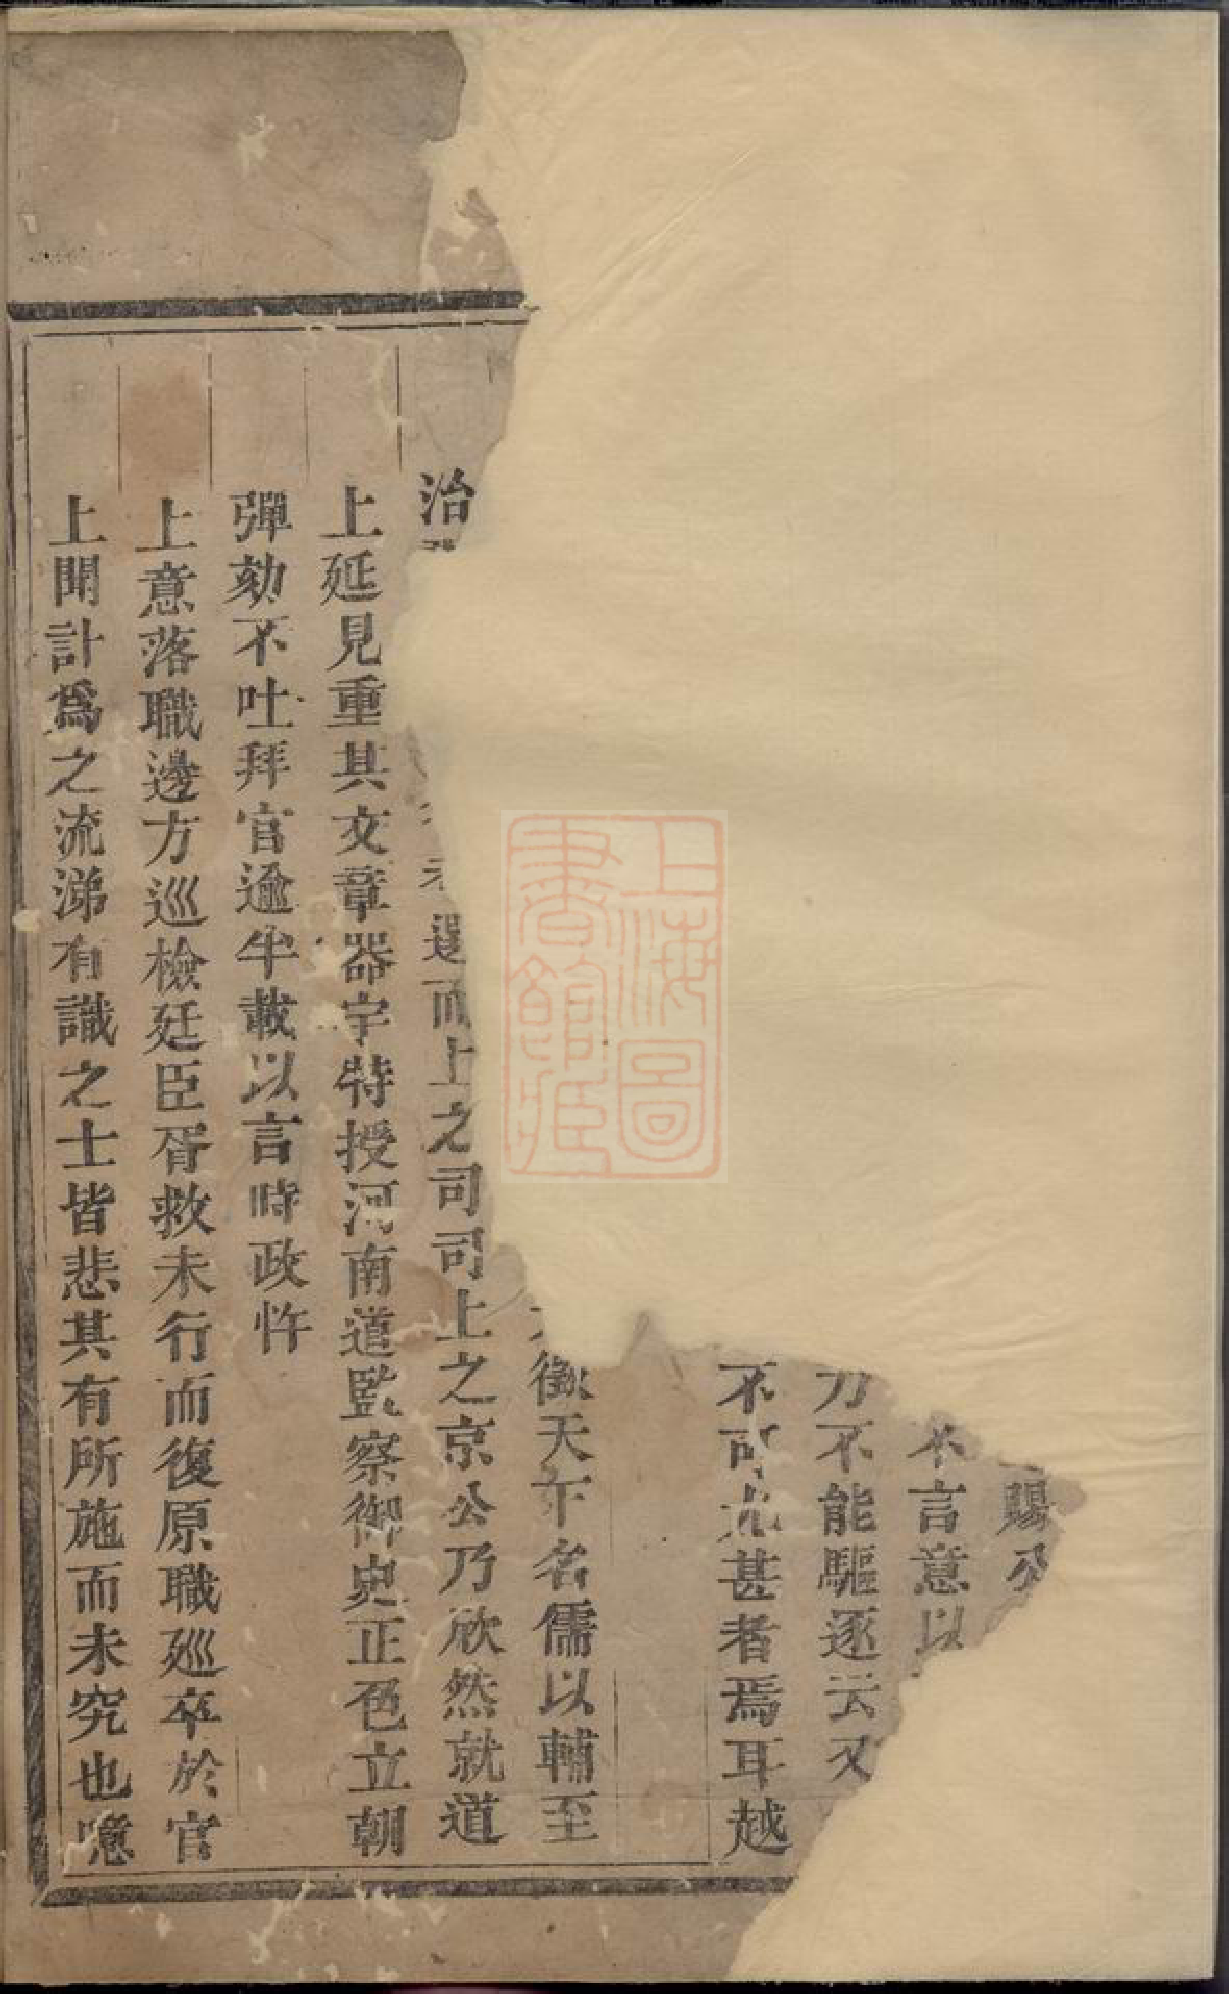 賜公
不言意以
力不能驅逐云又
不可尤甚者焉耳越
徵天下名儒以輔至
治
選而上之司司上之京公乃欣然就道
上延見重其文章器宇特授河南道監察御史正色立朝
彈劾不吐拜官逾半載以言時政忤
上意落職邊方巡檢廷臣胥救未行而復原職巡卒於官
上聞訃爲之流涕有識之士皆悲其有所施而未究也噫
上海圖
書館藏